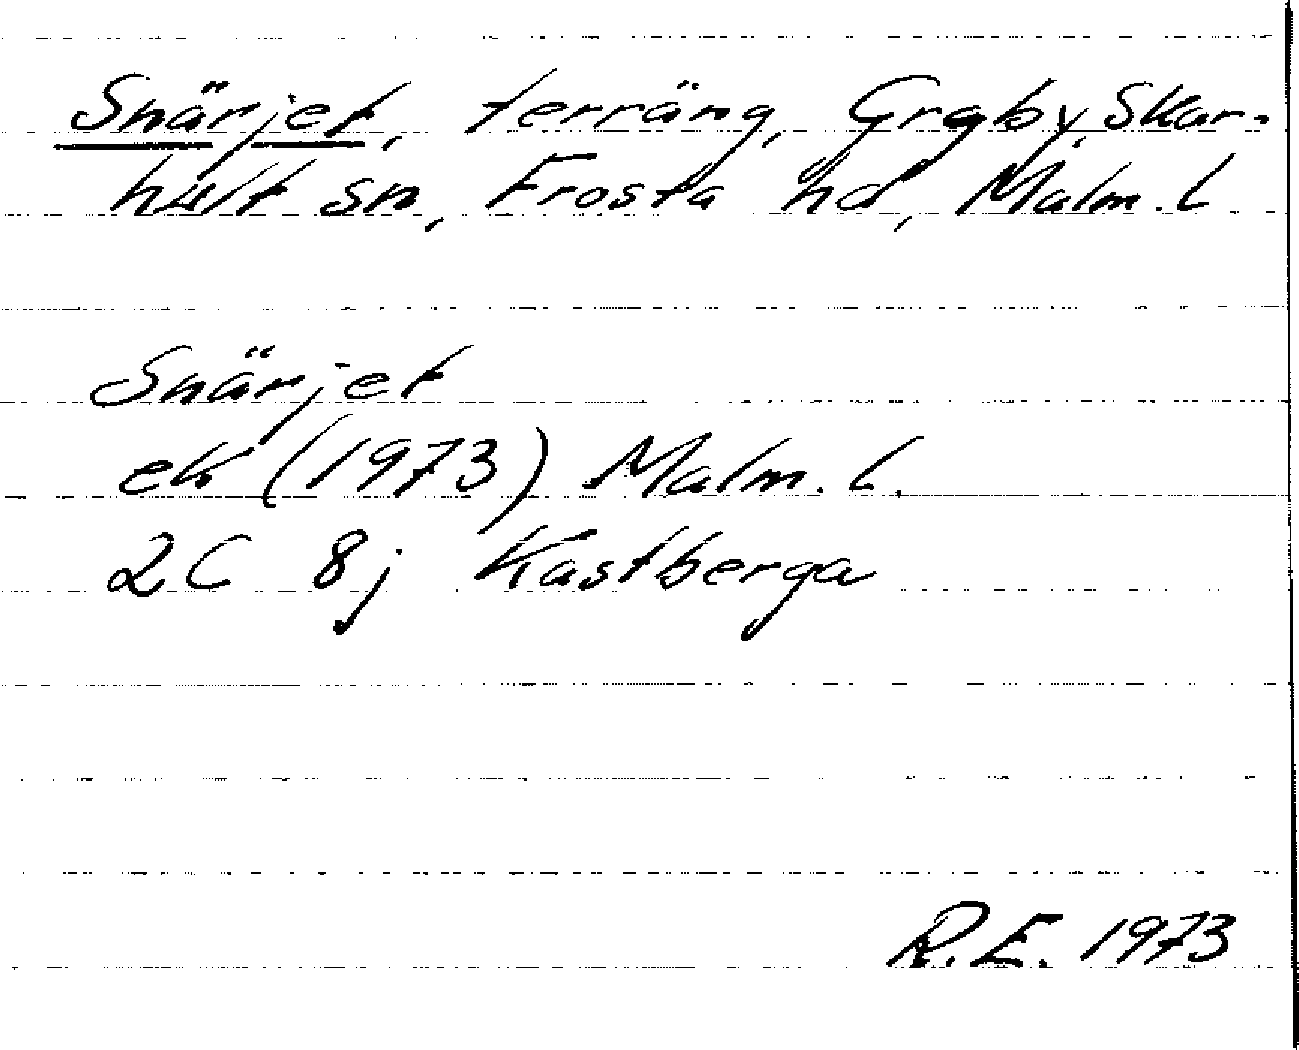 Snärjet, terräng, Graby, Skar-
hult sn, Frosta hd, Malm. L
Snärjet
ek (1973) Malm. L.
2C 8j Kastberga
R.E. 1973